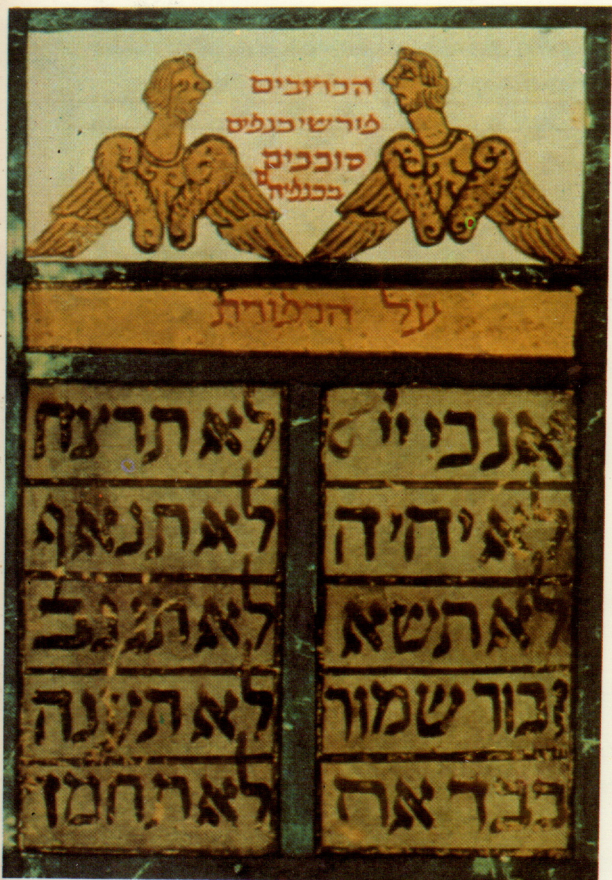 הכרובים
פורשי כנפים
סוככים
בכנפיהם
על הכפורת
אנכי יי
לא יהיה
לא תשא
זכור שמור
כבד את
לא תרצח
לא תנאף
לא תגנב
לא תענה
לא תחמד